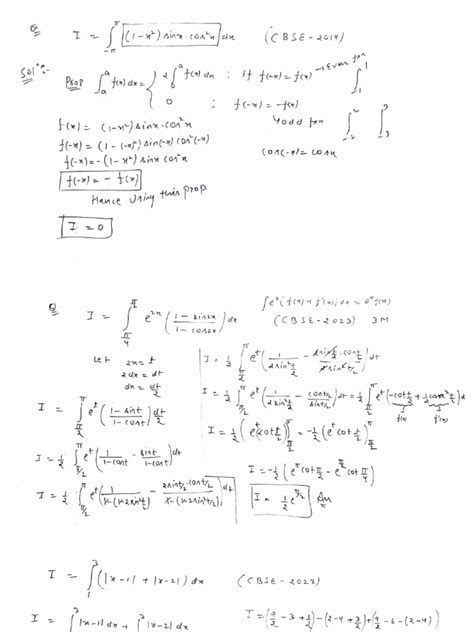 Q I = ∫_{-π}^{π} (1-x²) sinx·cos²x dx (CBSE-2019)
Solⁿ:- Prop ∫_{-a}^{a} f(x) dx = { 2∫_{0}^{a} f(x) dx ; if f(-x) = f(x) → Even fxn ∫_{-1}^{1}
0 ; f(-x) = -f(x)
↳ odd fxn ∫_{-2}^{2} ∫_{-3}^{3}
f(x) = (1-x²) sinx·cos²x
f(-x) = (1-(-x)²) sin(-x) cos²(-x) cos(-x) = cosx
f(-x) = -(1-x²) sinx cos²x
f(-x) = - f(x)
Hence Using this prop
I = 0
Q I = ∫_{π/4}^{π/2} e^{2x} (1-sin2x / 1-cos2x) dx ∫e^x (f(x)+f'(x)) dx = e^x f(x)
(CBSE-2023) 3M
Let 2x = t
2dx = dt
dx = dt/2
I = ∫_{π/2}^{π} e^t (1-sint / 1-cost) dt/2
I = 1/2 ∫_{π/2}^{π} e^t (1 / 1-cost - sint / 1-cost) dt
I = 1/2 ∫_{π/2}^{π} e^t (1 / 1-(1-2sin²t/2) - 2sint/2·cost/2 / 1-(1-2sin²t/2)) dt
I = 1/2 ∫_{π/2}^{π} e^t (1 / 2sin²t/2 - 2sint/2·cost/2 / 2sin²t/2) dt
I = 1/2 ∫_{π/2}^{π} e^t (1 / 2sin²t/2 - cost/2 / sint/2) dt = 1/2 ∫_{π/2}^{π} e^t (-cot t/2 + 1/2 cosec² t/2) d
f(x) f'(x)
I = 1/2 (-e^t cot t/2)_{π/2}^{π} = -1/2 (e^t cot t/2)_{π/2}^{π}
I = -1/2 (e^π cot π/2 - e^{π/2} cot π/4)
I = 1/2 e^{π/2} Ans
I = ∫_{1}^{3} (|x-1| + |x-2|) dx (CBSE-2023)
I = ∫_{1}^{3} |x-1| dx + ∫_{1}^{3} |x-2| dx I = (9/2 - 3 + 1/2) - (2-4+3/2) + (9/2 - 6 - (2-4)